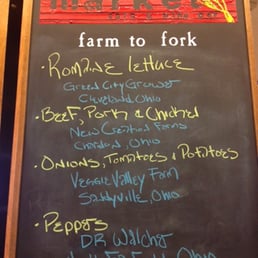 market
farm to fork
• Romaine lettuce
Green City Growers
Cleveland, Ohio
• Beef, Pork & Chicken
New Creation Farms
Chardon, Ohio
• Onions, Tomatoes & Potatoes
Veggie Valley Farm
Ohio
• Peppers
DR Walcher
Ohio